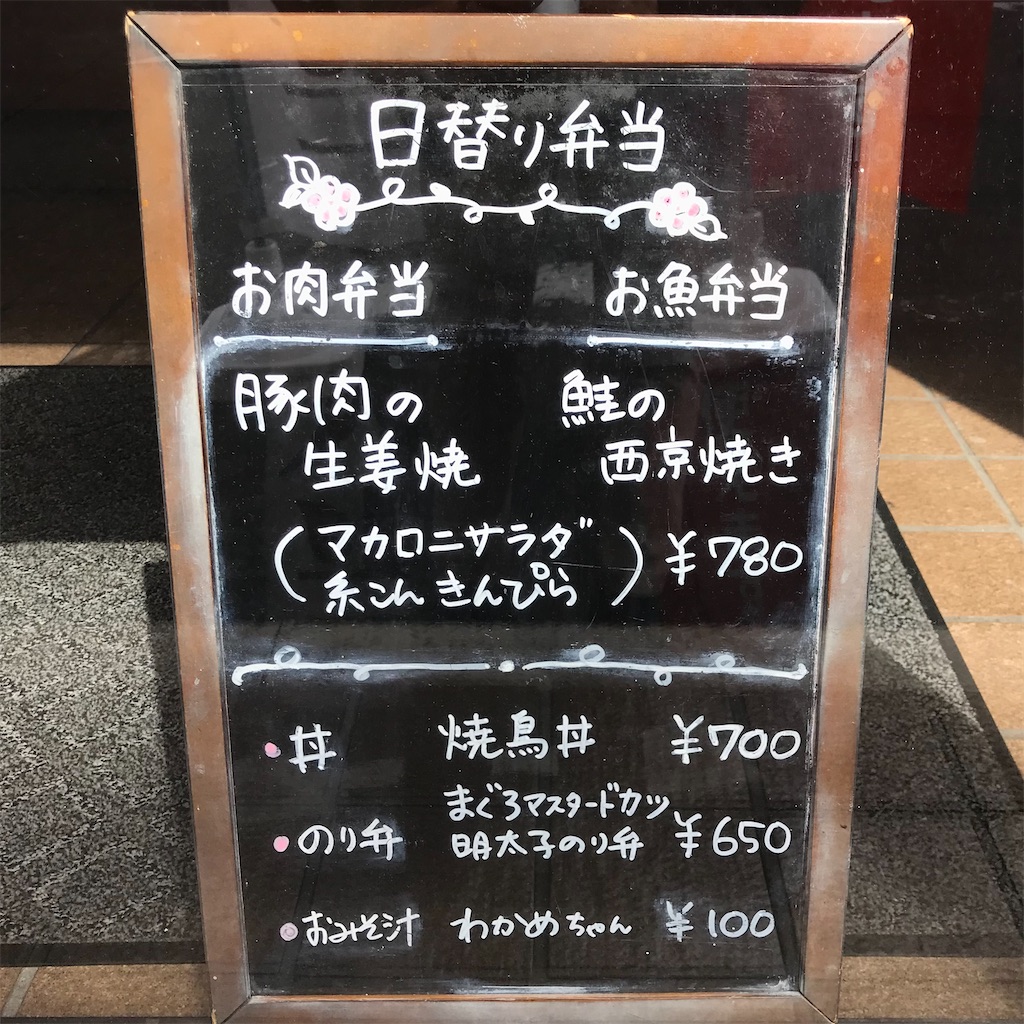 日替り弁当
お肉弁当
豚肉の
生姜焼
お魚弁当
鮭の
西京焼き
(マカロニサラダ
糸こんきんぴら)
¥780
・丼 焼鳥丼 ¥700
・のり弁 まぐろマスタードカツ
明太子のり弁 ¥650
・おみそ汁 わかめちゃん ¥100